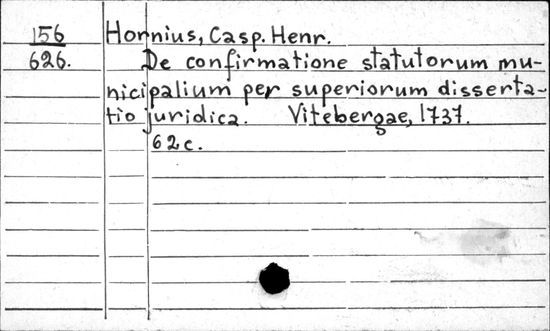 156 Hornius, Casp. Henr.
626. De confirmatione statutorum mu-
nicipalium per superiorum disserta-
tio juridica. Vitebergae, 1737.
62c.